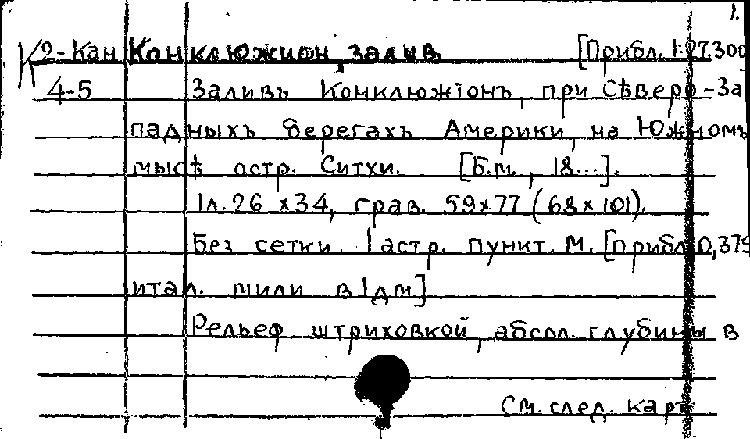 1.
К2-Кан Конклюжион, залив [Прибл. 1:27.300
4-5 Заливъ Конклюжіонъ, при Сѣверо-За
падныхъ берегахъ Америки, на Южномъ
мысѣ остр. Ситхи. [Б.м., 18...].
1л. 26 х 34, грав. 59х77 (68 х 101).
Без сетки. 1 астр. пункт. М. [прибл. 0,379
итал. мили в 1 дм]
Рельеф штриховкой, абсол. глубины в
См. след. карт